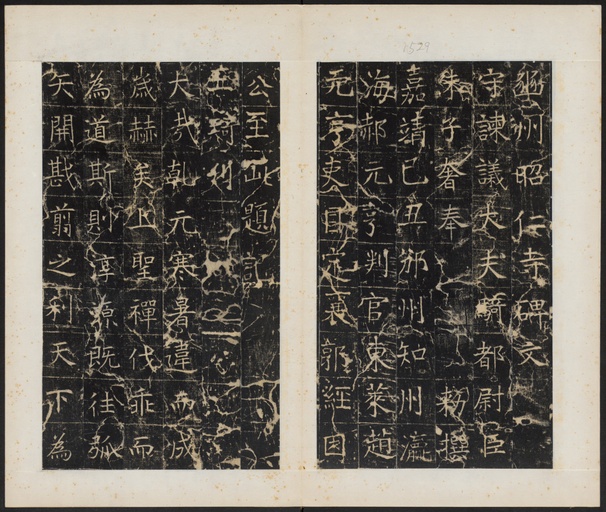 1529
豳州昭仁寺碑文
守諫議大夫騎都尉臣
朱子奢奉 勑撰
嘉靖己丑邠州知州瀛
海郝元亨判官東萊趙
元亨吏目定襄郭經因
公至此題記
大哉乾元寒暑違而成
歲赫矣上聖禪代乖而
為道斯則淳源既往弧
矢開戡翦之利天下為